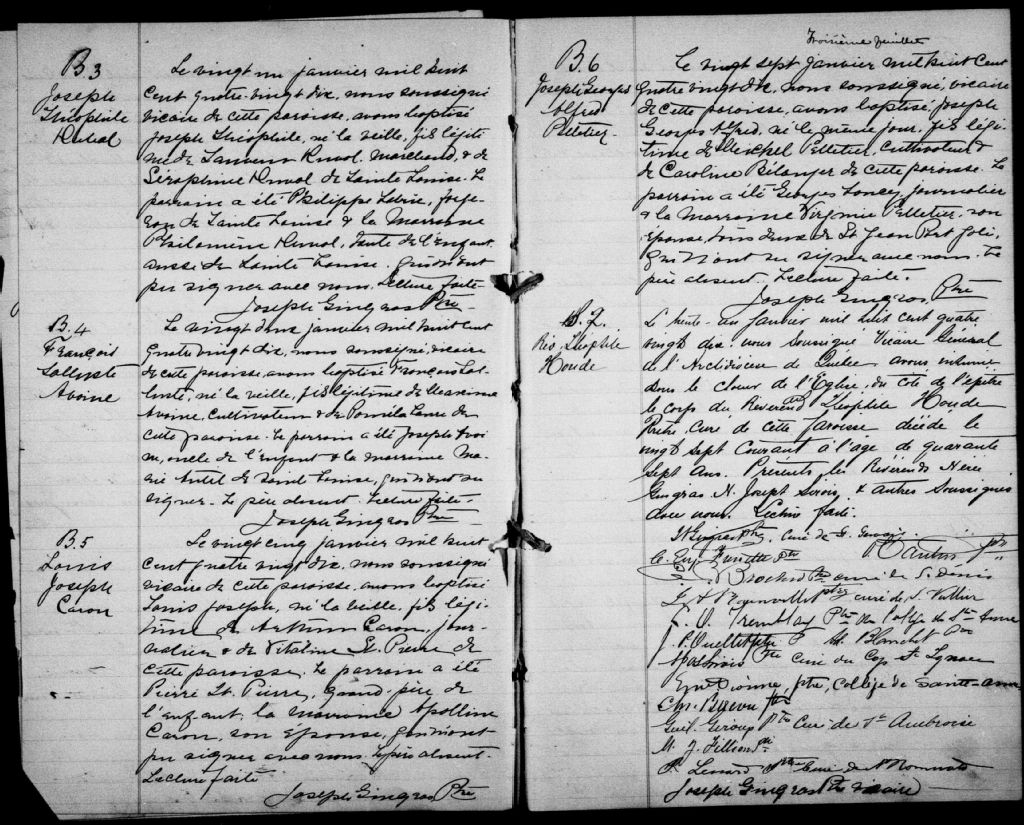 B 3
Joseph
Théophile
Duval
Le vingt un janvier mil huit
cent quatre-vingt dix, nous soussigné
vicaire de cette paroisse, avons baptisé
Joseph Théophile, né la veille, fils légiti-
me de Duval, Marchand, & de
Séraphine Duval de Sainte Louise. Le
parrain a été Philippe Lebrie, forge-
ron de Sainte Louise & la Marraine
Philomène Duval, tante de l'enfant
aussi de Sainte Louise. qui n'ont
pu signer avec nous. Lecture faite.
Joseph Gingras Ptre
B. 4
François
Calixte
Avoine
Le vingt deux janvier mil huit cent
quatre vingt dix, nous soussigné, vicaire
de cette paroisse, avons baptisé François Cal-
ixte, né la veille, fils légitime de
Avoine, cultivateur & de de
cette paroisse. Le parrain a été Joseph Avoi-
ne, oncle de l'enfant & la marraine Ma-
rie de Sainte Louise, qui n'ont su
signer. Le père absent. Lecture faite.
Joseph Gingras Ptre
B. 5
Louis
Joseph
Caron
Le vingt cinq janvier mil huit
cent quatre vingt dix, nous soussigné
vicaire de cette paroisse, avons baptisé
Louis Joseph, né la veille, fils légi-
time de Arthur Caron, jour-
nalier & de Vitaline St. Pierre de
cette paroisse. Le parrain a été
Pierre St. Pierre, grand-père de
l'enfant, la marraine Apolline
Caron, son épouse, qui n'ont
pu signer avec nous. Le père absent.
Lecture faite
Joseph Gingras Ptre
Troisième feuillet
B. 6
Joseph Georges
Alfred
Pelletier
Le vingt sept janvier mil huit cent
quatre vingt dix, nous soussigné, vicaire
de cette paroisse, avons baptisé Joseph
Georges Alfred, né le même jour, fils légi-
time de Michel Pelletier, cultivateur &
de Caroline Bélanger de cette paroisse. Le
parrain a été Georges journalier
& la Marraine Virginie Pelletier, son
épouse, tous deux de St Jean Port Joli,
qui n'ont su signer avec nous. Le
père absent. Lecture faite.
Joseph Gingras Ptre
S. 2.
Rév. Théophile
Houde
Le trente-un janvier mil huit cent quatre
vingt dix nous soussigné Vicaire Général
de l'Archidiocèse de Québec avons inhumé
dans le chœur de l'Eglise du côté de l'épître
le corps du Révérend Théophile Houde
Prêtre curé de cette paroisse décédé le
vingt sept courant à l'âge de quarante
sept ans. Présents les Révérends
Gingras N. Joseph Sirois, & autres soussignés
avec nous. Lecture faite.
N Gingras ptre, curé de S. Gervais
Ptre curé de S. Denis
ptre curé de S. Vallier
Tremblay Ptre du Collège de Ste Anne
J. P. Ouellet ptre Blanchet Ptre
Sirois Ptre Curé du Cap St Ignace
Dionne, ptre, Collège de Sainte-Anne
Guil. Giroux Ptre Curé de St Ambroise
M. J. Filion
Ptre Curé de St Romuald
Joseph Gingras Ptre vicaire